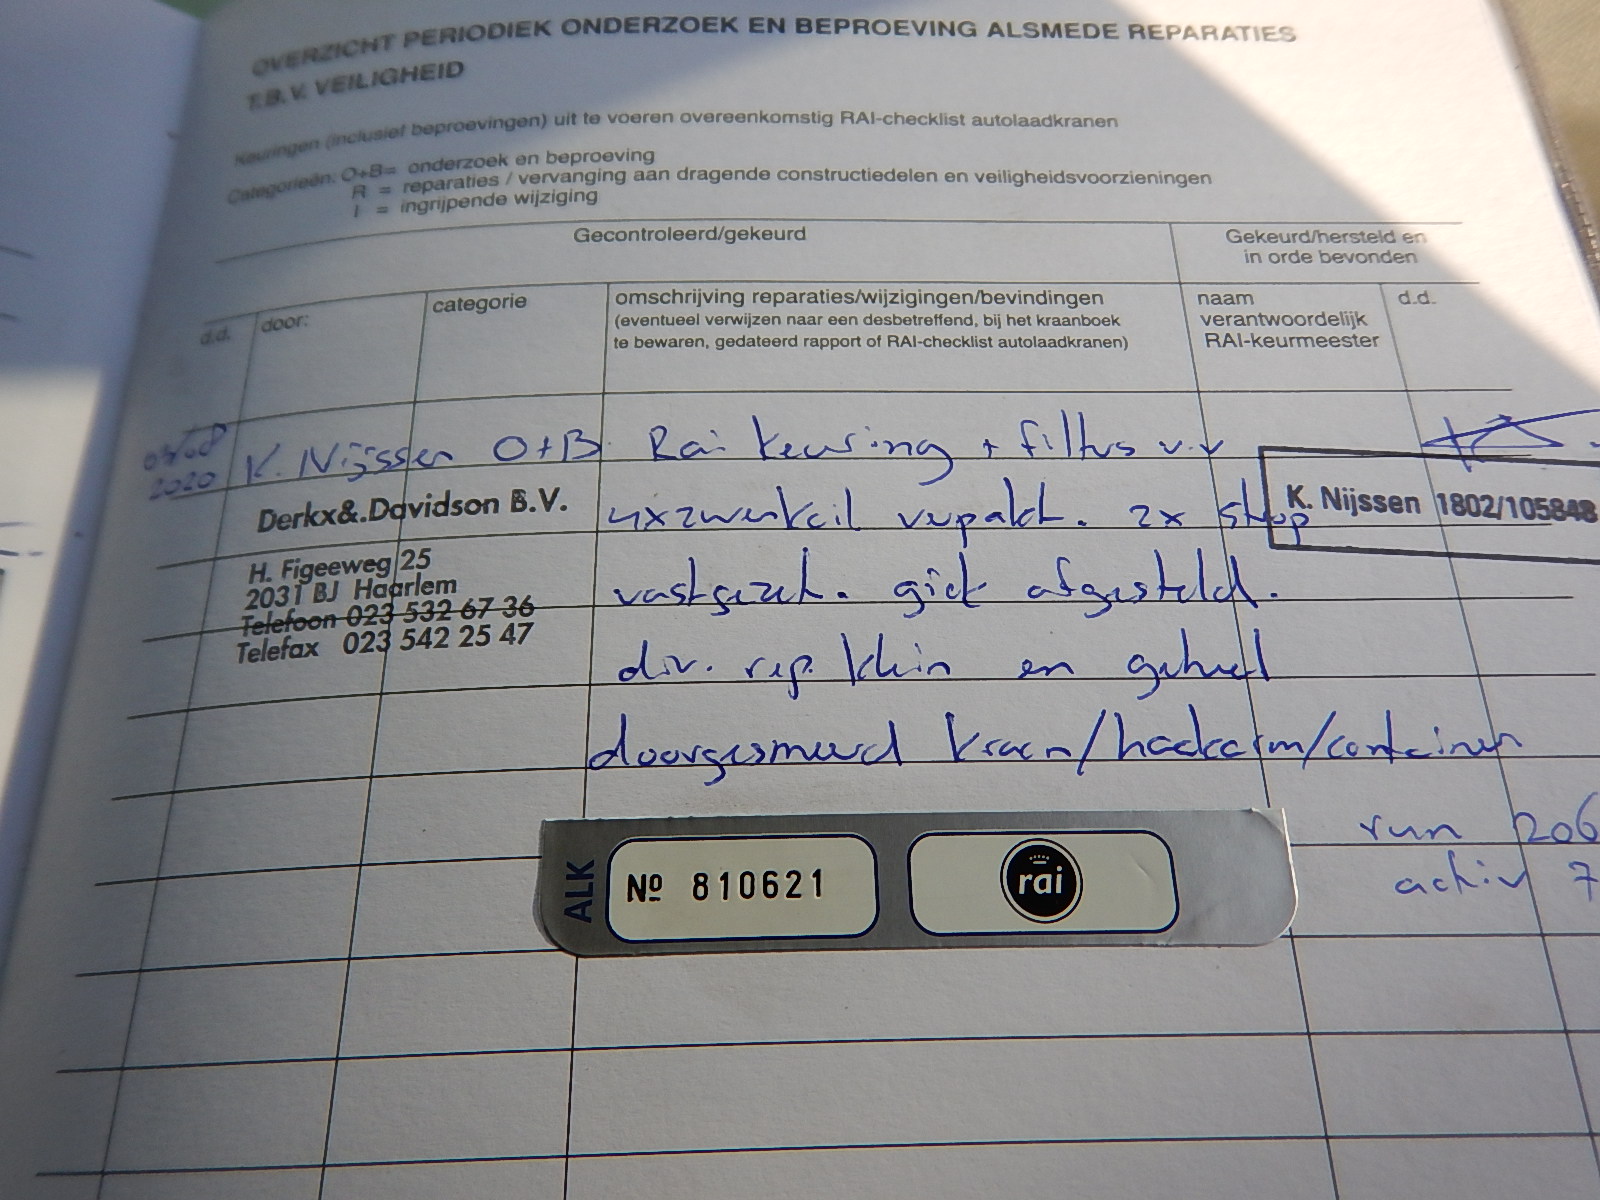 OVERZICHT PERIODIEK ONDERZOEK EN BEPROEVING ALSMEDE REPARATIES
T.B.V. VEILIGHEID
Keuringen (inclusief beproevingen) uit te voeren overeenkomstig RAI-checklist autolaadkranen
Categorieën: O+B= onderzoek en beproeving
R = reparaties / vervanging aan dragende constructiedelen en veiligheidsvoorzieningen
I = ingrijpende wijziging
Gecontroleerd/gekeurd
Gekeurd/hersteld en
in orde bevonden
d.d.
door:
categorie
omschrijving reparaties/wijzigingen/bevindingen
(eventueel verwijzen naar een desbetreffend, bij het kraanboek
te bewaren, gedateerd rapport of RAI-checklist autolaadkranen)
naam
verantwoordelijk
RAI-keurmeester
d.d.
2020
K. Nijssen O+B Rai keuring + filters v.v
Derkx&.Davidson B.V.
H. Figeeweg 25
2031 BJ Haarlem
Telefoon 023 532 67 36
Telefax 023 542 25 47
4x zwenkcil verpakt. 2x
K. Nijssen 1802/105848
vastgezet. giek afgesteld.
div. rep. klein en geheel
doorgesmeerd kraan/haakarm/container
run 206
7
ALK
Nº 810621
rai